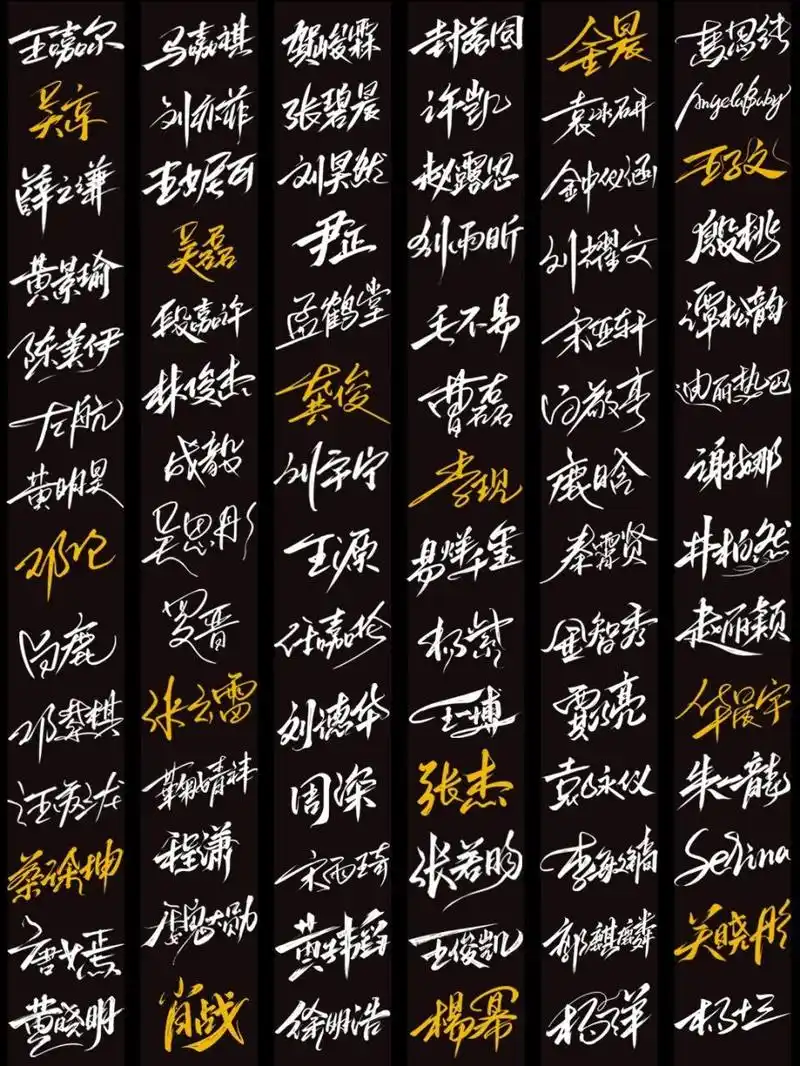 王嘉尔
吴京
薛之谦
黄景瑜
陈美伊
左航
黄明昊
邓论
尚鹿
邓蔡棋
蔡徐坤
黄晓明
马嘉祺
刘亦菲
王妮可
吴磊
段嘉许
林俊杰
成毅
吴思彤
罗晋
张云雷
鞠婧祎
程潇
肖战
贺峻霖
张碧晨
刘昊然
尹正
孟鹤堂
龚俊
刘宇宁
王源
任嘉伦
刘德华
周深
宋雨琦
黄韩韬
徐明浩
封茗囧
许凯
赵露思
刘雨昕
毛不易
曹磊
李现
易烊千玺
杨紫
王一博
张杰
张若昀
王俊凯
楊幂
金晨
袁冰妍
刘耀文
宋亚轩
冯敬亭
鹿晗
秦霄贤
金智秀
贾亮
袁咏仪
李敏镐
郭麒麟
杨洋
Angelababy
王子文
殷桃
谭松韵
迪丽热巴
谢娜
井柏然
赵丽颖
华晨宇
朱一龙
Selina
关晓彤
杨十三